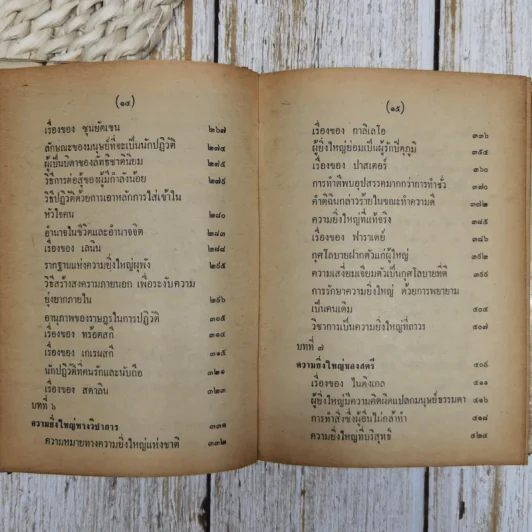 (๑๔)
เรื่องของ ซุนยัดเซน ๒๖๗
ลักษณะของมนุษย์ที่จะเป็นนักปฏิวัติ ๒๗๔
ผู้เป็นบิดาของลัทธิชาตินิยม ๒๗๕
วิธีการต่อสู้ของผู้มีกำลังน้อย ๒๗๙
วิธีปฏิวัติด้วยการเอาหลักการใส่เข้าใน
หัวใจคน ๒๘๐
อำนาจในชีวิตและอำนาจจิต ๒๘๓
เรื่องของ เลนิน ๒๘๘
รากฐานแห่งความยิ่งใหญ่ผุพัง ๒๙๕
วิธีสร้างสงครามภายนอก เพื่อระงับความ
ยุ่งยากภายใน ๒๙๖
อานุภาพของราษฎรในการปฏิวัติ ๓๐๕
เรื่องของ ทร๊อตสกี ๓๑๔
เรื่องของ เกเรนสกี ๓๑๙
นักปฏิวัติที่คนรักและนับถือ ๓๒๑
เรื่องของ สตาลิน ๓๒๓
บทที่ ๖
ความยิ่งใหญ่ทางวิชาการ ๓๓๑
ความหมายทางความยิ่งใหญ่แห่งชาติ ๓๓๒
(๑๕)
เรื่องของ กาลิเลโอ ๓๓๖
ผู้ยิ่งใหญ่ย่อมเป็นผู้รักปิตุภูมิ ๓๕๔
เรื่องของ ปาสเตอร์ ๓๖๐
การทำดีพบอุปสรรคมากกว่าการทำชั่ว ๓๗๐
คำติฉินกล่าวร้ายในขณะทำความดี ๓๗๒
ความยิ่งใหญ่ที่แท้จริง ๓๘๕
เรื่องของ ฟาราเดย์ ๓๘๖
กุศโลบายฝากตัวแก่ผู้ใหญ่ ๓๙๒
ความเสงี่ยมเจียมตัวเป็นกุศโลบายที่ดี ๓๙๙
การรักษาความยิ่งใหญ่ ด้วยการพยายาม
เป็นคนเดิม ๔๐๔
วิชาการเป็นความยิ่งใหญ่ที่ถาวร ๔๐๗
บทที่ ๗
ความยิ่งใหญ่ของสตรี ๔๐๙
เรื่องของ ไนติงเกล ๔๑๑
ผู้ยิ่งใหญ่มีความคิดผิดแปลกมนุษย์ธรรมดา ๔๑๒
การทำสิ่งซึ่งผู้อื่นไม่กล้าทำ ๔๑๘
ความยิ่งใหญ่ที่บริสุทธิ์ ๔๒๔